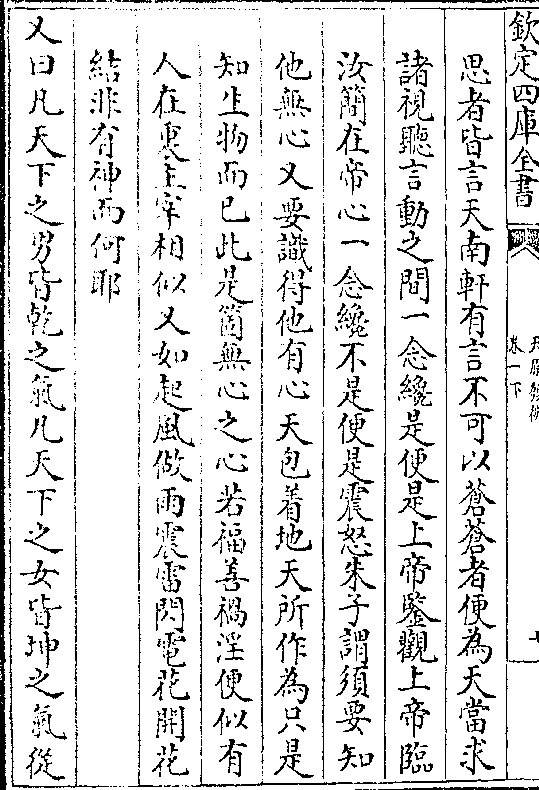 欽定四庫全書
卷一下
思者皆言天南軒有言不可以蒼蒼者便為天當求
諸視聽言動之間一念纔是便是上帝鑒觀上帝臨
汝簡在帝心一念纔不是便是震怒朱子謂須要知
他無心又要識得他有心天包着地天所作為只是
知生物而已此是箇無心之心若福善禍淫便似有
人在裏主宰相似又如起風做雨震雷閃電花開花
結非有神而何耶
又曰凡天下之男皆乾之氣凡天下之女皆坤之氣從